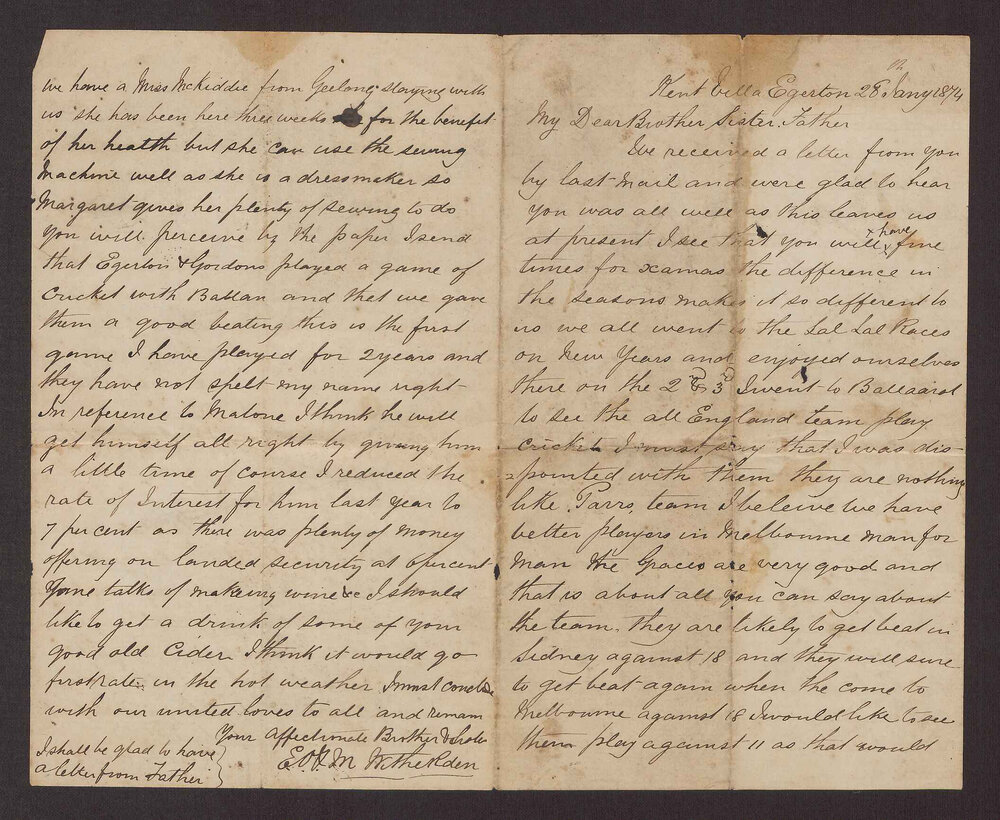 Kent Villa Egerton 28th Jany 1874
My Dear Brother Sister Father
We received a letter from you
by last mail and were glad to hear
you was all well as this leaves us
at present I see that you will have fine
times for xamas the difference in
the seasons makes it so different to
us we all went to the Lal Lal Races
on New Years and enjoyed ourselves
there on the 2nd & 3rd I went to Ballaarat
to see the all England team play
cricket I must say that I was dis-
=pointed with them they are nothing
like Parrs team I beleive we have
better players in Melbourne man for
man the Graces are very good and
that is about all you can say about
the team. they are likely to get beat in
Sidney against 18 and they will sure
to get beat again when the come to
Melbourne against 18 I would like to see
them play against 11 as that would
we have a Miss McKiddie from Geelong staying with
us she has been here three weeks for the benefit
of her health but she can use the sewing
machine well as she is a dressmaker so
Margaret gives her plenty of sewing to do
you will perceive by the paper I send
that Egerton & Gordons played a game of
cricket with Ballan and that we gave
them a good beating this is the first
game I have played for 2 years and
they have not spelt my name right
In reference to Malone I think he will
get himself all right by giving him
a little time of course I reduced the
rate of Interest for him last year to
7 per cent as there was plenty of money
offering on landed security at 6 percent
talks of makeing wine &c I should
like to get a drink of some of your
good old Cider I think it would go
firstrate in the hot weather I must conclude
with our united loves to all and remain
Your affectionate Brother &
E & M Witherden
I shall be glad to have
a letter from Father